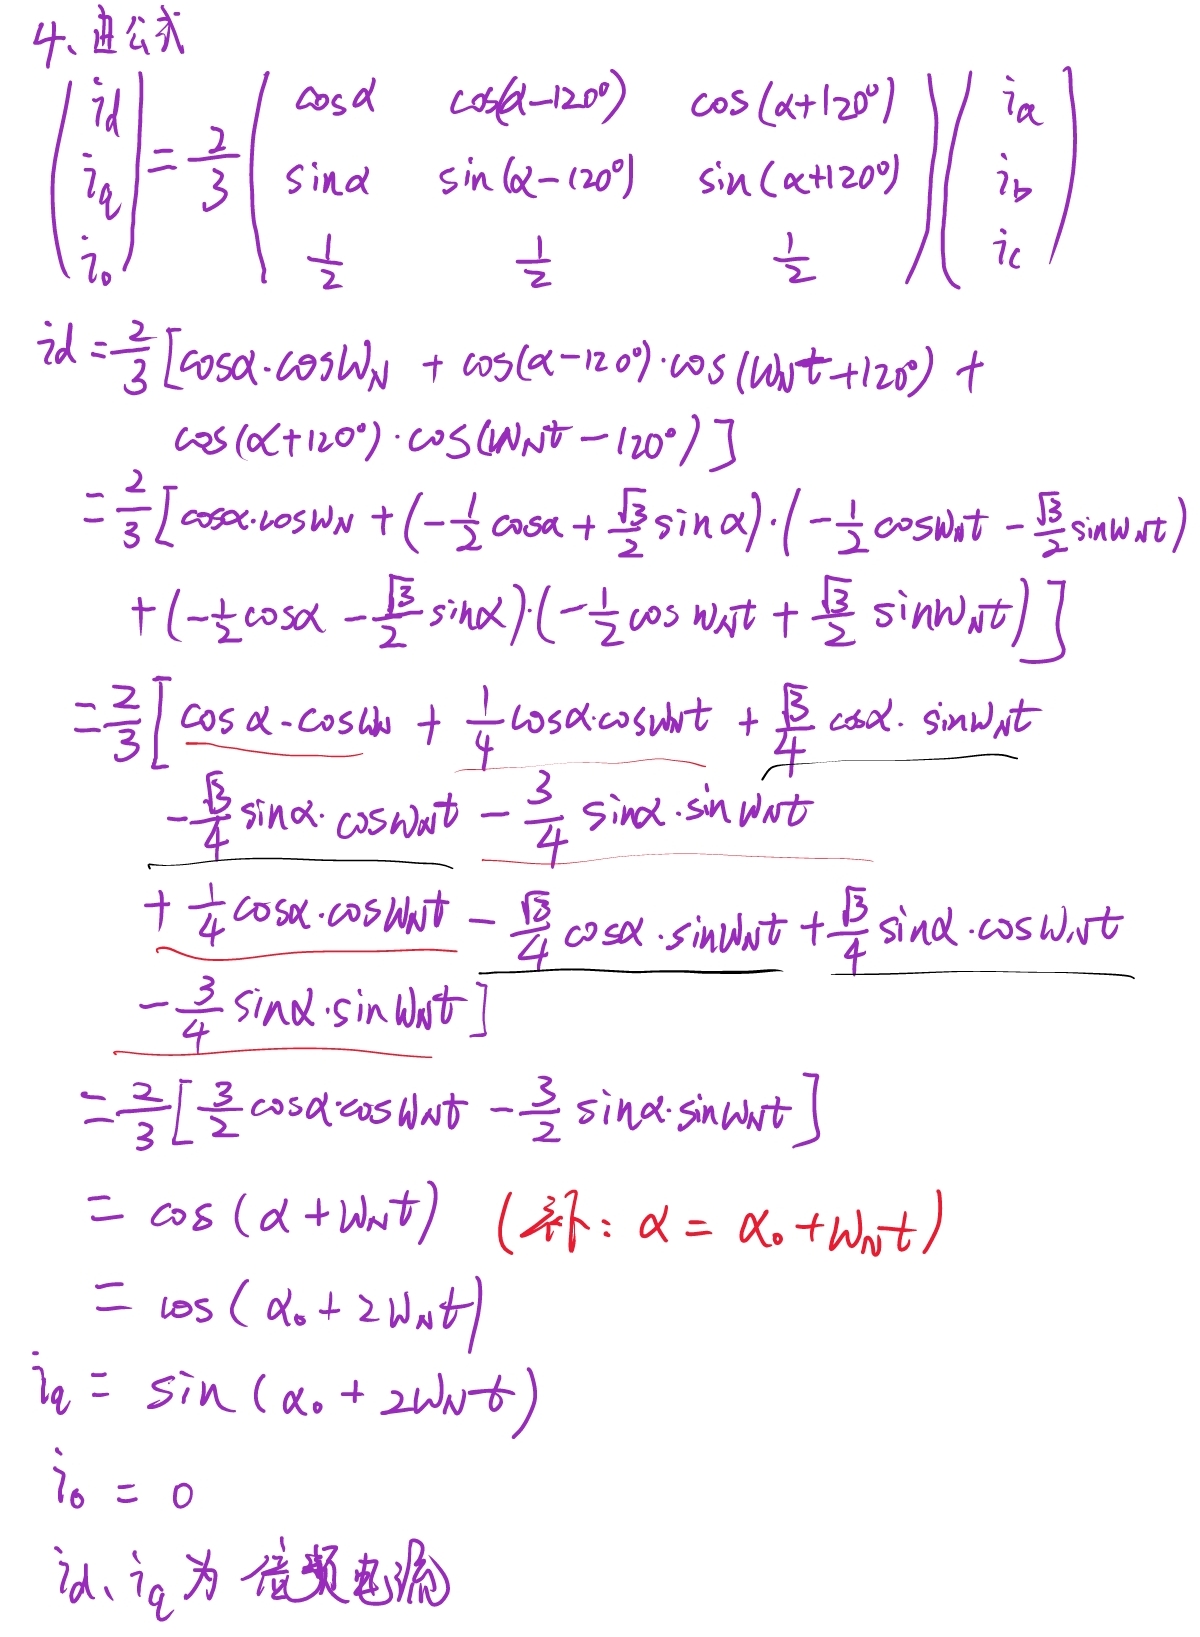 4、由公式
(id iq i₀) = 2/3 (cosα cos(α-120°) cos(α+120°) ; sinα sin(α-120°) sin(α+120°) ; 1/2 1/2 1/2) (ia ib ic)
id = 2/3 [cosα·cosW_N + cos(α-120°)·cos(W_N t+120°) +
cos(α+120°)·cos(W_N t-120°)]
= 2/3 [cosα·cosW_N + (-1/2 cosα + √3/2 sinα)·(-1/2 cosW_N t - √3/2 sinW_N t)
+ (-1/2 cosα - √3/2 sinα)·(-1/2 cosW_N t + √3/2 sinW_N t)]
= 2/3 [cosα·cosW_N + 1/4 cosα·cosW_N t + √3/4 cosα·sinW_N t
- √3/4 sinα·cosW_N t - 3/4 sinα·sinW_N t
+ 1/4 cosα·cosW_N t - √3/4 cosα·sinW_N t + √3/4 sinα·cosW_N t
- 3/4 sinα·sinW_N t]
= 2/3 [3/2 cosα·cosW_N t - 3/2 sinα·sinW_N t]
= cos(α+W_N t) (补: α = α₀+W_N t)
= cos(α₀+2W_N t)
iq = sin(α₀+2W_N t)
i₀ = 0
id、iq为倍频电流